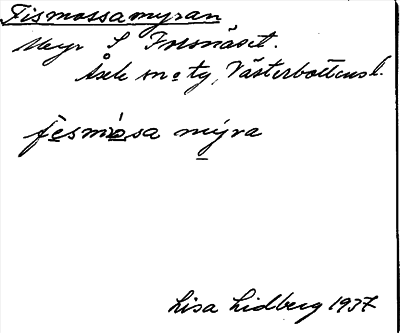 Fismossamyran
Myr S Forsnäset.
Åsele sn o ty, Västerbottens l.
fèsmòsa mýra
Lisa Lidberg 1937